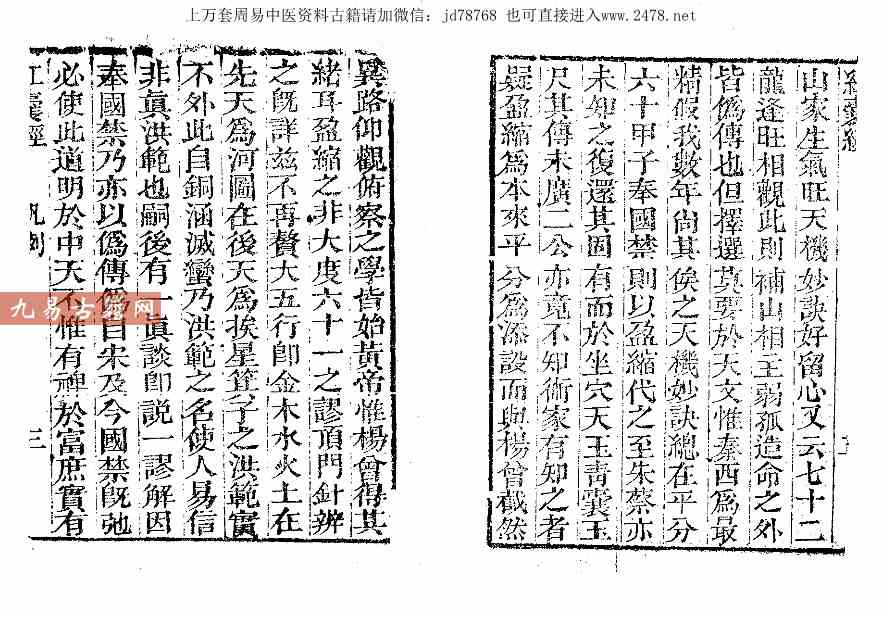 上万套周易中医资料古籍请加微信：jd78768 也可直接进入www.2478.net
山家生氣旺天機妙訣好留心又云七十二
龍逢旺相觀此則補山相主弱孤造命之外
皆僞傳也但擇選莫要於天文惟泰西爲最
精假我數年尚其俟之天機妙訣總在平分
六十甲子奉國禁則以盈縮代之至朱蔡亦
未知之復還其固有而於坐穴天玉青囊玉
尺其傳未廣二公亦竟不知術家有知之者
疑盈縮爲本來平分爲添設而與楊曾截然
異路仰觀俯察之學皆始黃帝惟楊曾得其
緒耳盈縮之非大度六十一之謬頂門針辨
之既詳兹不再贅大五行卽金木水火土在
先天爲河圖在後天爲挨星箕子之洪範實
不外此自銅涵滅蠻乃洪範之名使人易信
非眞洪範也嗣後有一眞談卽說一謬解因
奉國禁乃亦以僞傳僞自宋及今國禁既弛
必使此道明於中天不惟有裨於富庶實有
囊經 凡例 三
九易古籍网